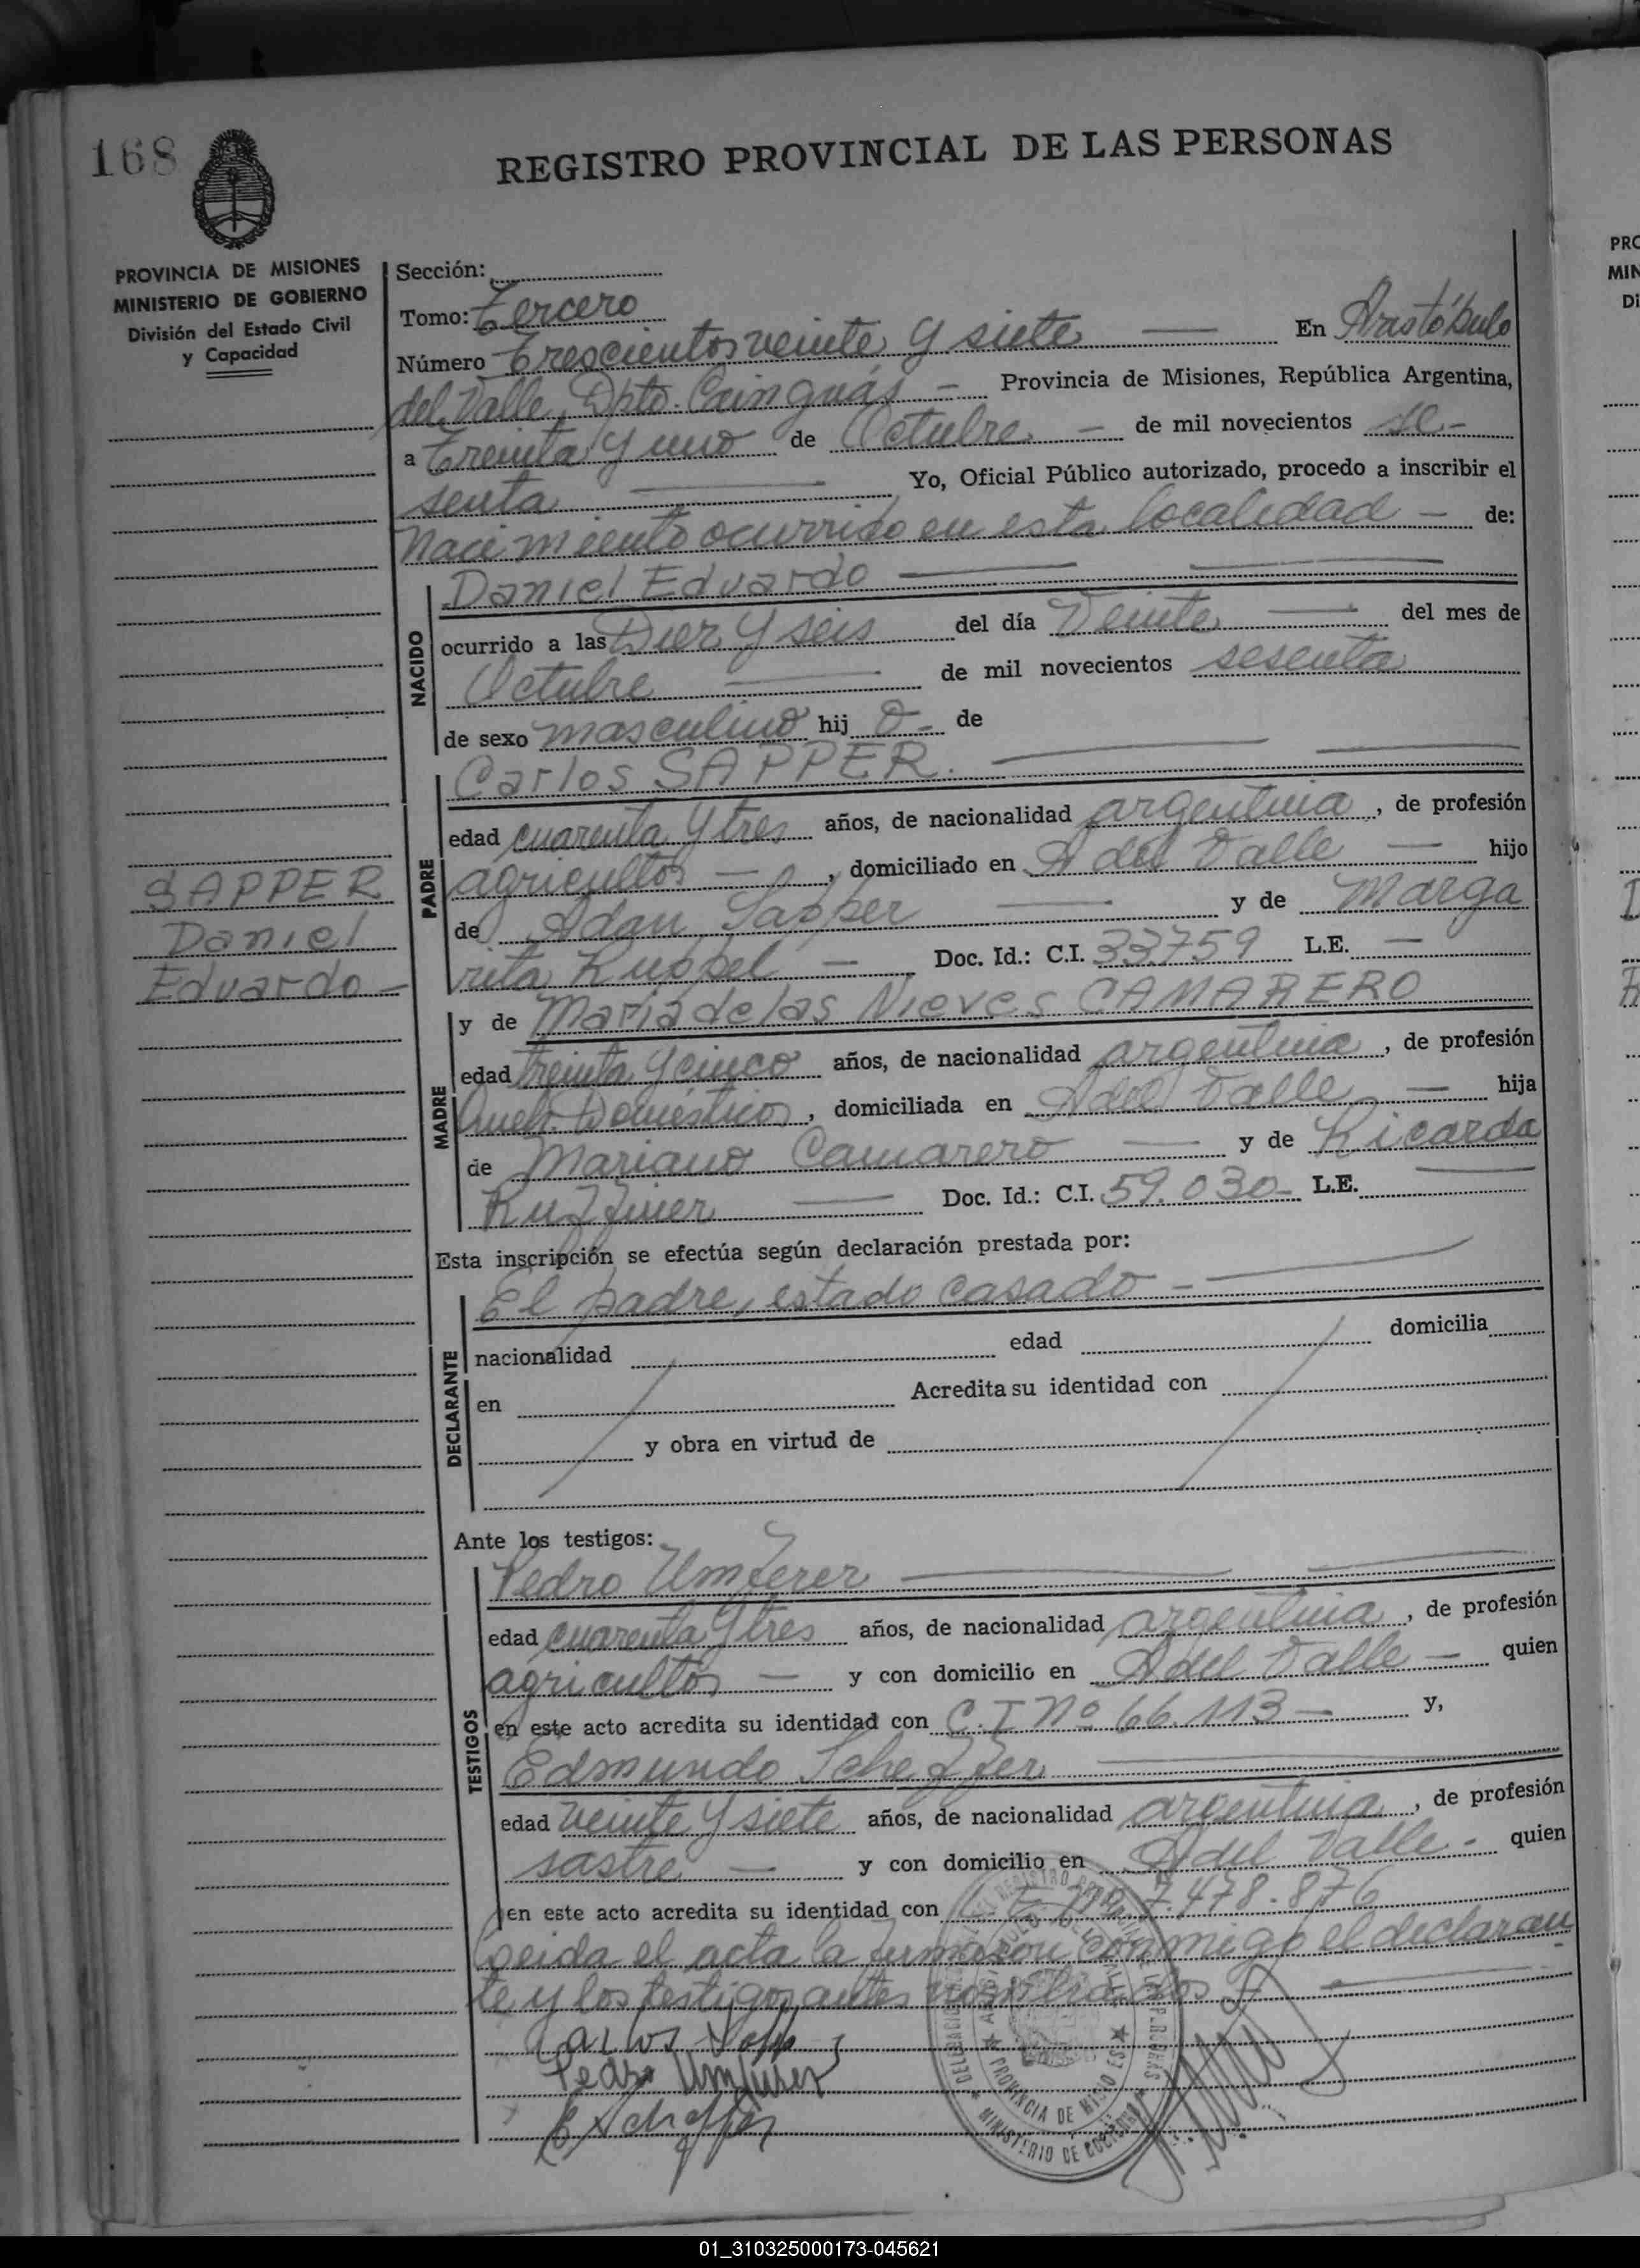 168
REGISTRO PROVINCIAL DE LAS PERSONAS
PROVINCIA DE MISIONES
MINISTERIO DE GOBIERNO
División del Estado Civil
y Capacidad
Sección:
Tomo: Tercero
Número Trescientos veinte y siete — En Aristóbulo
del Valle, Dpto. Cainguás - Provincia de Misiones, República Argentina,
a Treinta y uno de Octubre - de mil novecientos se-
senta — Yo, Oficial Público autorizado, procedo a inscribir el
Nacimiento ocurrido en esta localidad - de:
NACIDO
Daniel Eduardo —
ocurrido a las Diez y seis del día Veinte — del mes de
Octubre — de mil novecientos sesenta
de sexo masculino hij o - de
PADRE
Carlos SAPPER. —
edad cuarenta y tres años, de nacionalidad argentina, de profesión
agricultor —, domiciliado en A del Valle — hijo
de Adan Sapper — y de Marga
rita Ruppel — Doc. Id.: C.I. 33759 L.E. —
SAPPER
Daniel
Eduardo -
MADRE
y de Maria de las Nieves CAMARERO
edad treinta y cinco años, de nacionalidad argentina, de profesión
Queh. Domésticos, domiciliada en A del Valle — hija
de Mariano Camarero — y de Ricarda
— Doc. Id.: C.I. 59.030- L.E. —
Esta inscripción se efectúa según declaración prestada por:
DECLARANTE
El padre, estado casado - —
nacionalidad edad domicilia
en Acredita su identidad con
y obra en virtud de
Ante los testigos:
TESTIGOS
Pedro Umferer —
edad cuarenta y tres años, de nacionalidad argentina, de profesión
agricultor — y con domicilio en A del Valle - quien
en este acto acredita su identidad con C.I Nº 66.113 — y,
Edmundo Scheffer —
edad veinte y siete años, de nacionalidad argentina, de profesión
sastre — y con domicilio en A del Valle - quien
en este acto acredita su identidad con L.E. Nº 7.478.876
Leida el acta la firmaron conmigo el declaran
te y los testigos antes nombrados —
Carlos Sapper
Pedro Umferer
E Scheffer
PROVINCIA DE MISIONES
MINISTERIO DE GOBIERNO
01_310325000173-045621